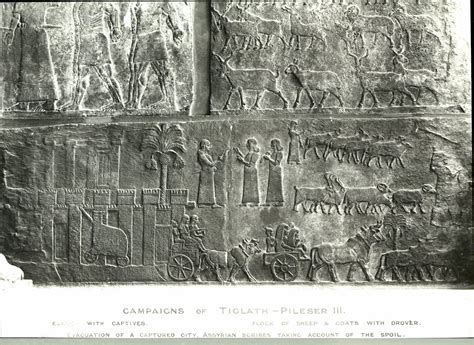 CAMPAIGNS OF TIGLATH-PILESER III.
WITH CAPTIVES. FLOCK OF SHEEP & GOATS WITH DROVER.
EVACUATION OF A CAPTURED CITY, ASSYRIAN SCRIBES TAKING ACCOUNT OF THE SPOIL.